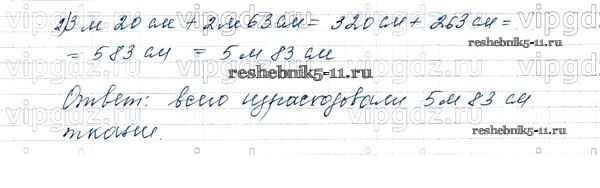 2) 3 м 20 см + 2 м 63 см = 320 см + 263 см =
= 583 см = 5 м 83 см
reshebnik5-11.ru
reshebnik5-11.ru
Ответ: всего израсходовали 5 м 83 см
ткани.
reshebnik5-11.ru